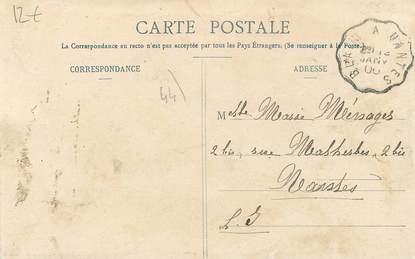 12€
CARTE POSTALE
La Correspondance au recto n'est pas acceptée par tous les Pays Étrangers. (Se renseigner à la Poste.)
CORRESPONDANCE
ADRESSE
A NANTES
JANV
44)
Melle Marie Ménages
2 bis, rue Malherbes, 2 bis
Nantes
L. I